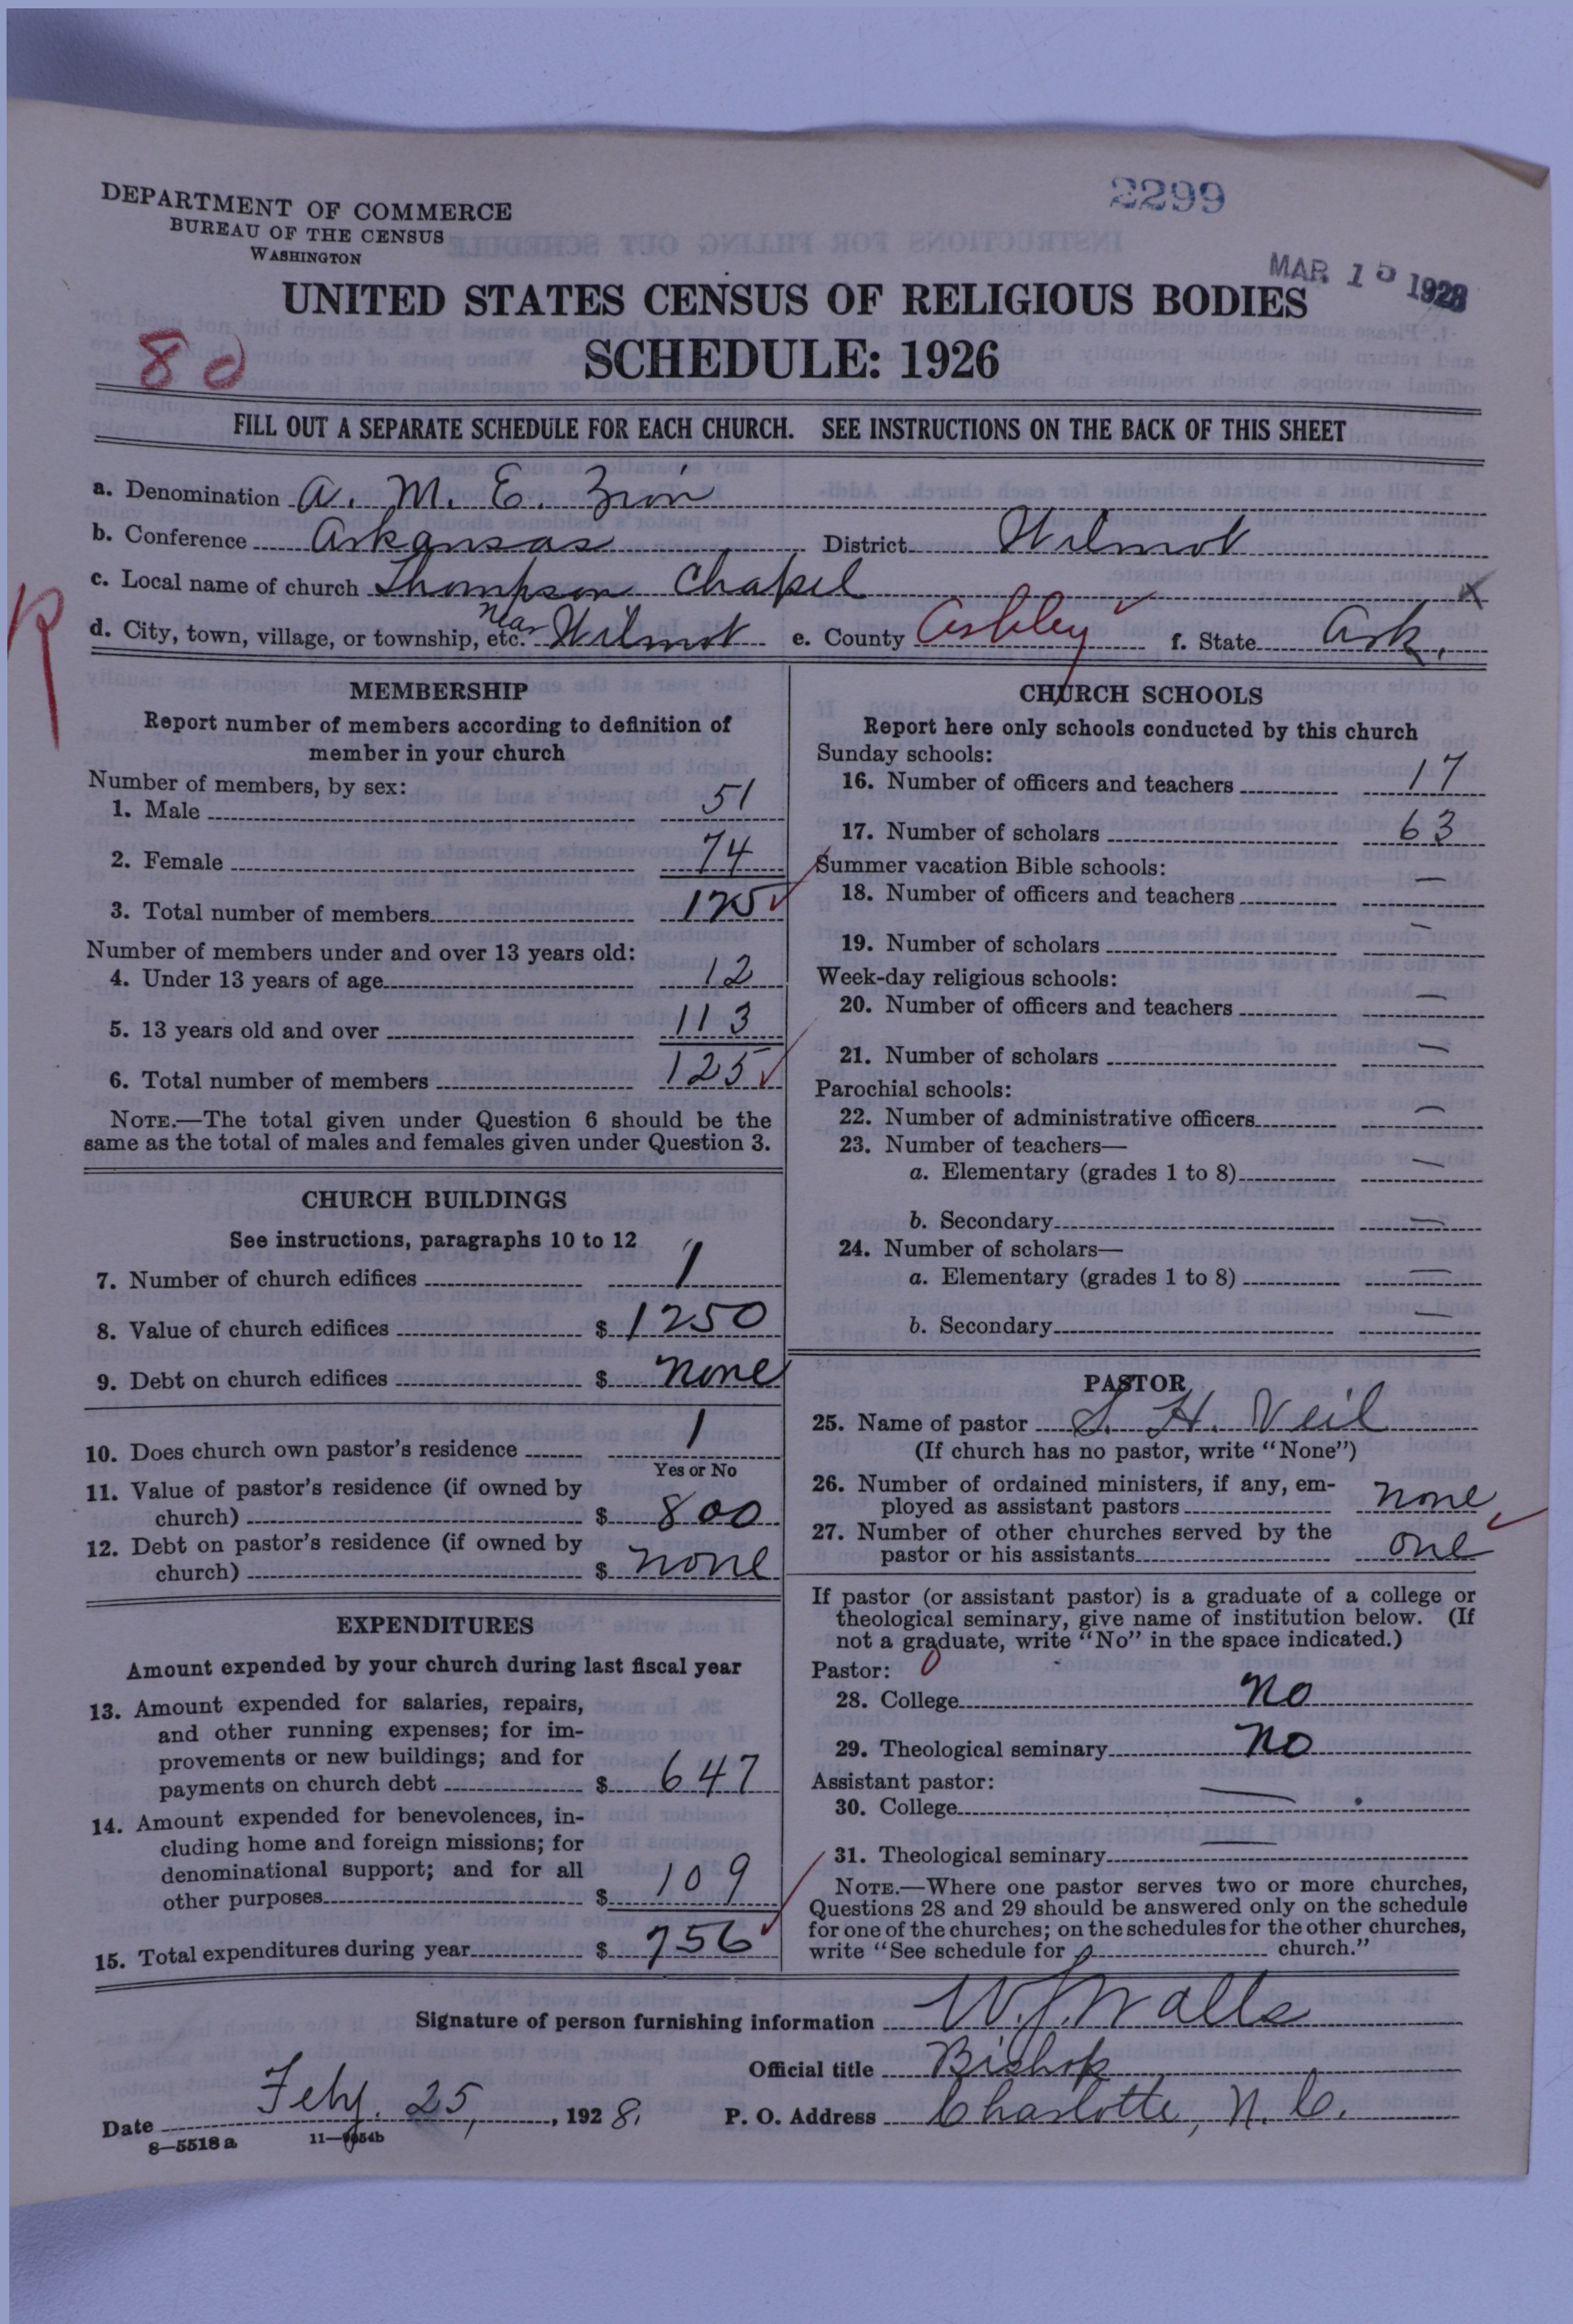 2299
DEPARTMENT OF COMMERCE
BUREAU OF THE CENSUS
WASHINGTON
MAR 15 1928
UNITED STATES CENSUS OF RELIGIOUS BODIES
SCHEDULE: 1926
8d
FILL OUT A SEPARATE SCHEDULE FOR EACH CHURCH. SEE INSTRUCTIONS ON THE BACK OF THIS SHEET
a. Denomination A. M. E. Zion
b. Conference Arkansas District Wilmot
c. Local name of church Thompson Chapel x
R
d. City, town, village, or township, etc. near Wilmot e. County Ashley f. State Ark.
MEMBERSHIP
Report number of members according to definition of
member in your church
Number of members, by sex:
1. Male 51
2. Female 74
3. Total number of members 125
Number of members under and over 13 years old:
4. Under 13 years of age 12
5. 13 years old and over 113
6. Total number of members 125
NOTE.—The total given under Question 6 should be the
same as the total of males and females given under Question 3.
CHURCH BUILDINGS
See instructions, paragraphs 10 to 12
7. Number of church edifices 1
8. Value of church edifices $ 1250
9. Debt on church edifices $ none
10. Does church own pastor's residence 1
Yes or No
11. Value of pastor's residence (if owned by
church) $ 800
12. Debt on pastor's residence (if owned by
church) $ none
EXPENDITURES
Amount expended by your church during last fiscal year
13. Amount expended for salaries, repairs,
and other running expenses; for im-
provements or new buildings; and for
payments on church debt $ 647
14. Amount expended for benevolences, in-
cluding home and foreign missions; for
denominational support; and for all
other purposes $ 109
15. Total expenditures during year $ 756
CHURCH SCHOOLS
Report here only schools conducted by this church
Sunday schools:
16. Number of officers and teachers 17
17. Number of scholars 63
Summer vacation Bible schools:
18. Number of officers and teachers —
19. Number of scholars —
Week-day religious schools:
20. Number of officers and teachers —
21. Number of scholars —
Parochial schools:
22. Number of administrative officers —
23. Number of teachers—
a. Elementary (grades 1 to 8) —
b. Secondary —
24. Number of scholars—
a. Elementary (grades 1 to 8) —
b. Secondary —
PASTOR
25. Name of pastor S. H. Veil
(If church has no pastor, write "None")
26. Number of ordained ministers, if any, em-
ployed as assistant pastors none
27. Number of other churches served by the
pastor or his assistants one
If pastor (or assistant pastor) is a graduate of a college or
theological seminary, give name of institution below. (If
not a graduate, write "No" in the space indicated.)
Pastor: 0
28. College no
29. Theological seminary no
Assistant pastor:
30. College —
31. Theological seminary —
NOTE.—Where one pastor serves two or more churches,
Questions 28 and 29 should be answered only on the schedule
for one of the churches; on the schedules for the other churches,
write "See schedule for church."
Signature of person furnishing information W. J. Walls
Official title Bishop
Date Feby. 25, 1928. P. O. Address Charlotte, N. C.
8—5518 a